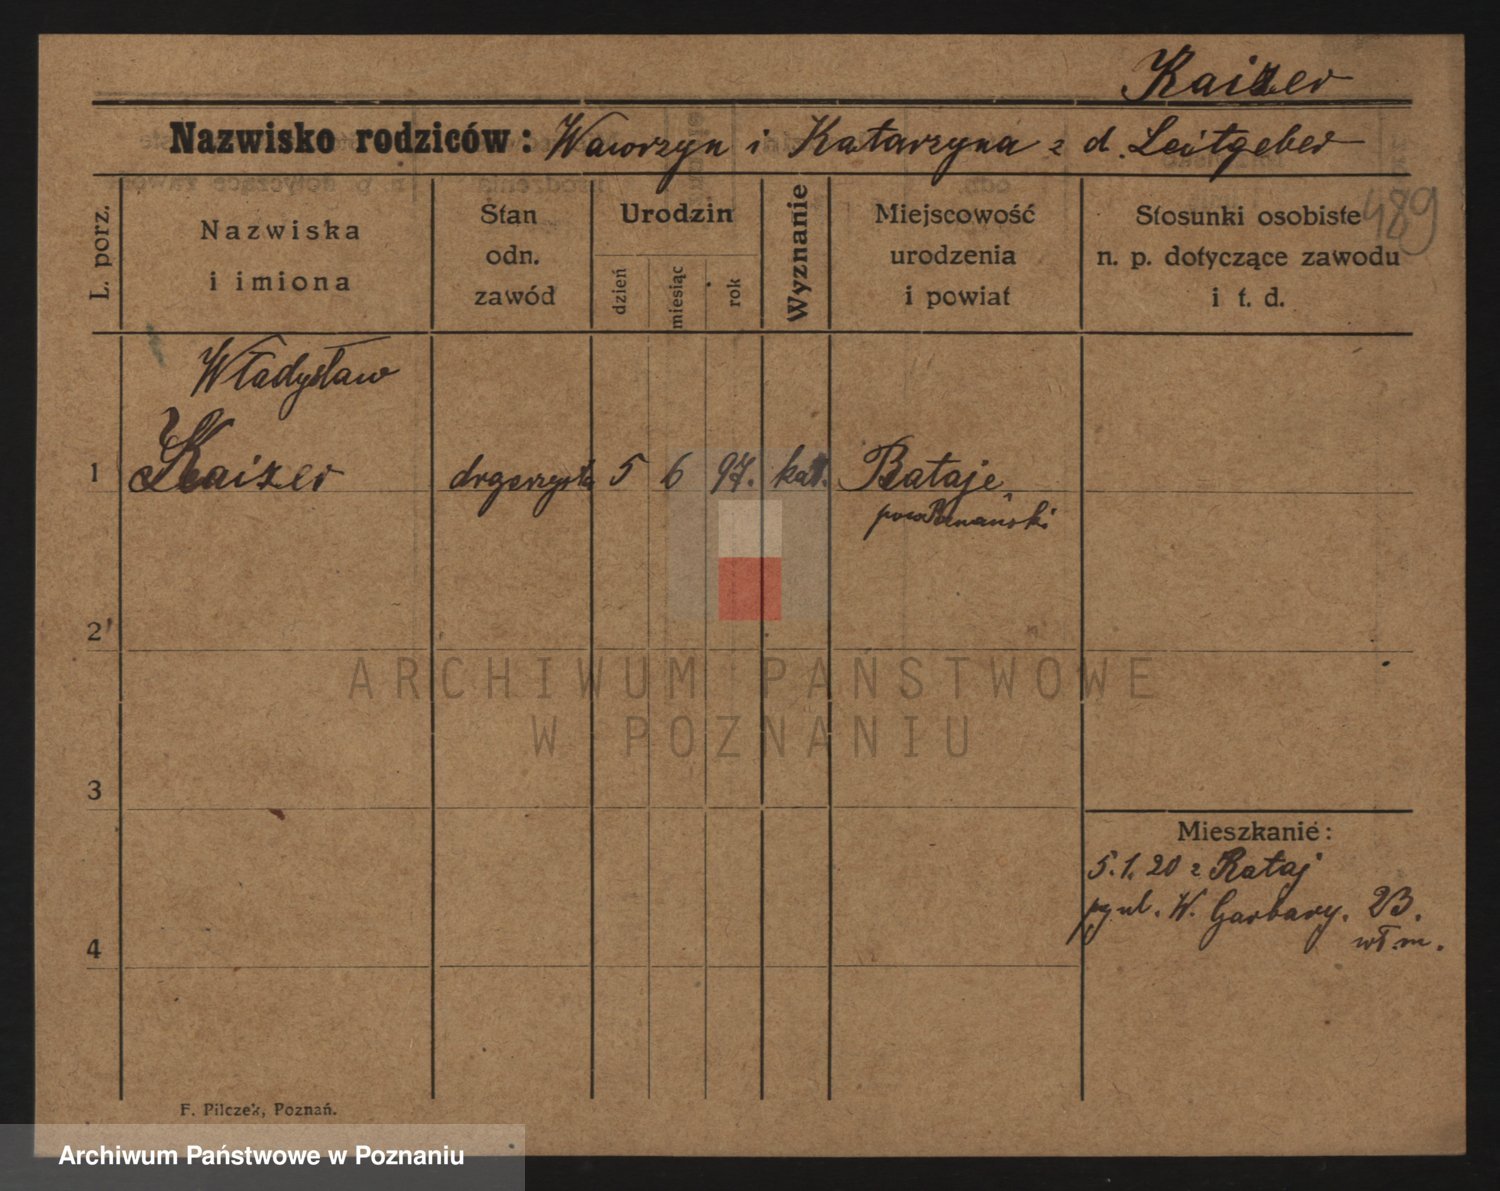 Kaizer
Nazwisko rodziców: Wawrzyn i Katarzyna z d. Leitgeber
489
L. porz.
Nazwiska
i imiona
Stan
odn.
zawód
Urodzin
dzień
miesiąc
rok
Wyznanie
Miejscowość
urodzenia
i powiat
Stosunki osobiste
n. p. dotyczące zawodu
i t. d.
Władysław
1 Kaizer drgerzysta 5 6 97. kat. Rataje
pow Poznański
2
ARCHIWUM PAŃSTWOWE
W POZNANIU
3
Mieszkanie:
5.1.20 z Rataj
ul. W. Garbary. 23.
wł. m.
4
F. Pilczek, Poznań.
Archiwum Państwowe w Poznaniu